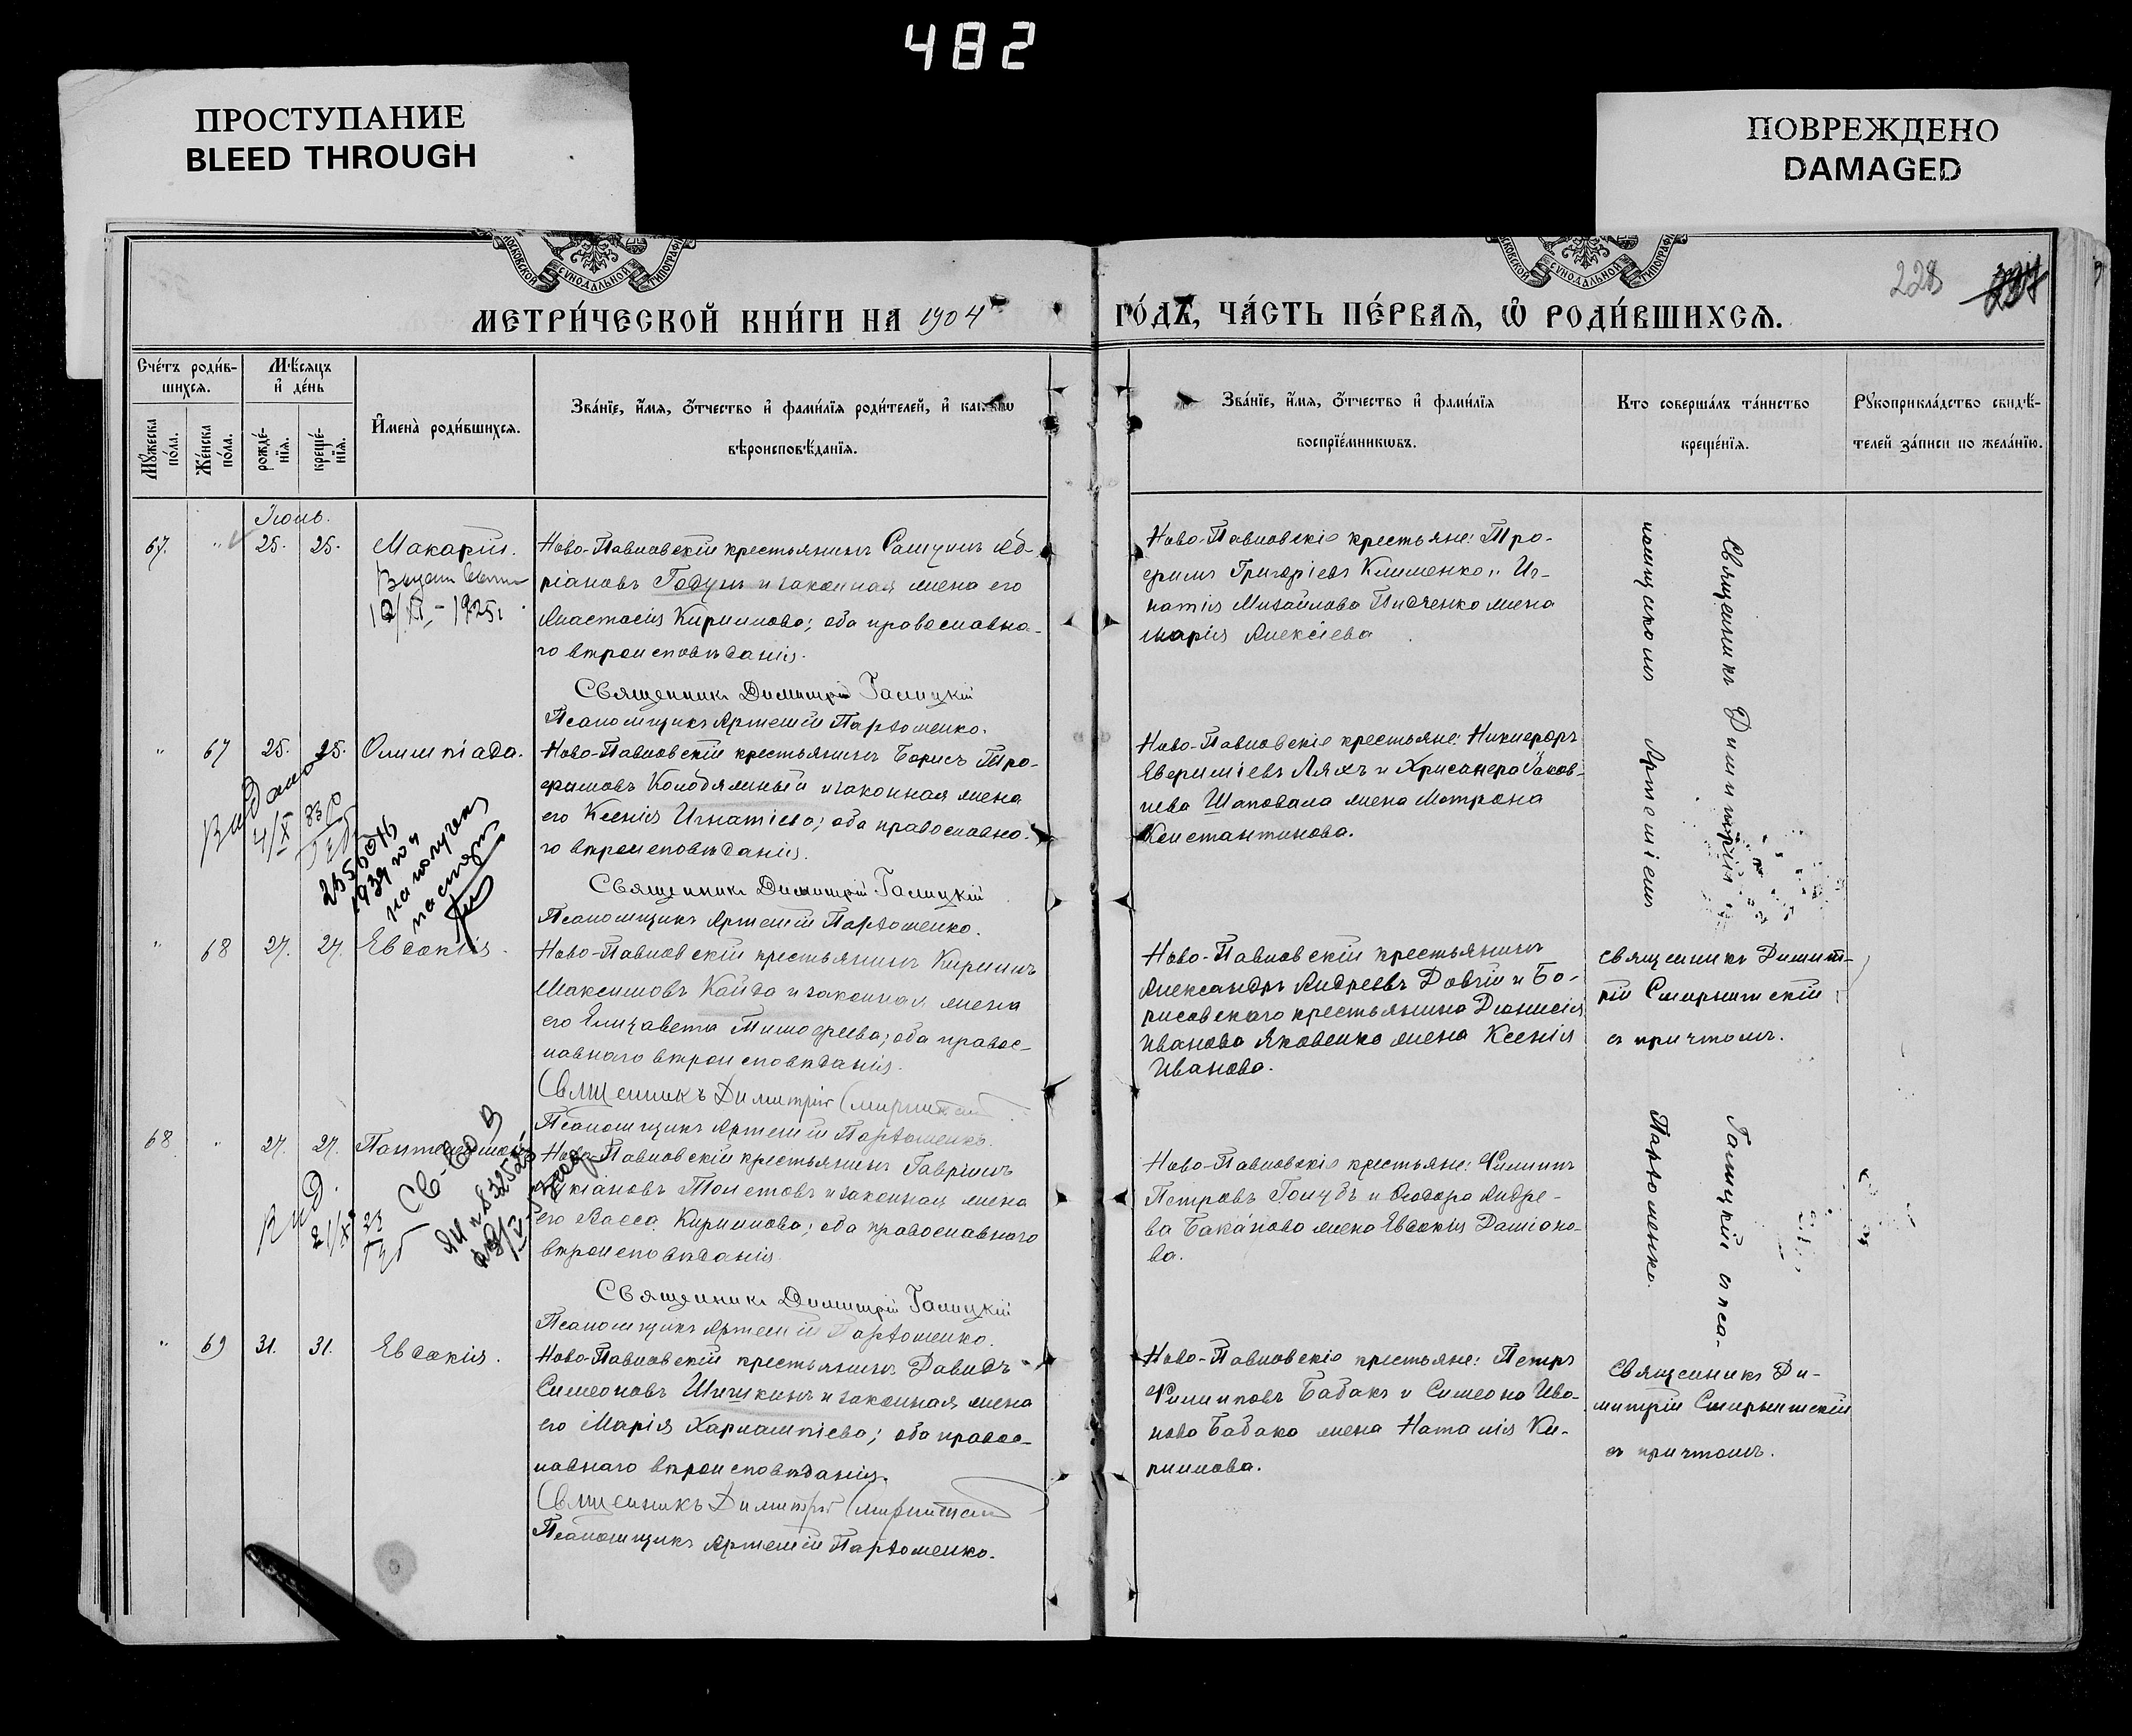 482
ПРОСТУПАНИЕ
BLEED THROUGH
ПОВРЕЖДЕНО
DAMAGED
МОСКОВСКОЙ СѴНОДАЛЬНОЙ ТИПОГРАФІ
СѴНОДАЛЬНОЙ ТИПОГРАФІ
228
МЕТРИ́ЧЕСКОЙ КНИ́ГИ НА 1904
ГО́ДЪ, ЧА́СТЬ ПЕ́РВАЯ, Ѡ РОДИ́ВШИХСЯ.
Сче́тъ роди́в-
шихся.
Му́жеска по́ла.
Же́нска по́ла.
Мѣ́сяцъ
и де́нь
рожде́-
нїя.
креще́-
нїя.
И҆мена̀ роди́вшихся.
Зва́нїе, и҆́мя, ѻ҆́тчество и҆ фами́лїя роди́телей, и҆
вѣроисповѣ́данїя.
Зва́нїе, и҆́мя, ѻ҆́тчество и҆ фами́лїя
воспрїе́мникѡвъ.
Кто соверша́лъ та́инство
креще́нїя.
Рꙋкоприкла́дство свидѣ́-
телей за́писи по жела́нїю.
Іюль.
67. " 25. 25. Макарій.
10/XI - 1925г.
Ново-Павловскій крестьянинъ Самуилъ Ад-
ріановъ Годунъ и законная жена его
Анастасія Кириллова; оба православна-
го вѣроисповѣданія.
Священникъ Димитрій Галицкій
Псаломщикъ Артемій Пархоменко.
Ново-Павловскіе крестьяне: Тро-
фимъ Григоріевъ Клименко и Иг-
натія Михайлова Пивченко жена
Марія Алексіева
" 67 25. 25. Олимпіада.
Видано
4/X
1939 г
на получен
паспорт
Ново-Павловскій крестьянинъ Борисъ Тро-
фимовъ Колодяжный и законная жена
его Ксенія Игнатіева; оба православна-
го вѣроисповѣданія.
Священникъ Димитрій Галицкій
Псаломщикъ Артемій Пархоменко.
Ново-Павловскіе крестьяне: Никифоръ
Евфиміевъ Ляхъ и Хрисанфа Іаков-
лева Шаповала жена Матрона
Константинова.
Священникъ Димитрій
Галицкій съ пса-
ломщикомъ Артеміемъ
Пархоменко.
" 68 27. 27. Евдокія.
Ново-Павловскій крестьянинъ Кириллъ
Максимовъ Кайда и законная жена
его Елизавета Тимофеева; оба правос-
лавнаго вѣроисповѣданія.
Священникъ Димитрій
Псаломщикъ Артемій Пархоменко.
Ново-Павловскій крестьянинъ
Александръ Андреевъ Довгій и Бо-
рисовскаго крестьянина Діонисія
Иванова Яковенко жена Ксенія
Иванова.
Священникъ Димит-
рій
съ причтомъ.
68 " 27. 27.
Вид.
Ново-Павловскій крестьянинъ Гавріилъ
Лукіановъ Толстовъ и законная жена
его Васса Кириллова; оба православнаго
вѣроисповѣданія.
Священникъ Димитрій Галицкій
Псаломщикъ Артемій Пархоменко.
Ново-Павловскіе крестьяне: Филиппъ
Петровъ Голубъ и Феодора Андре-
ва Баканова жена Евдокія Даміано-
ва.
" 69 31. 31. Евдокія.
Ново-Павловскій крестьянинъ Давидъ
Симеоновъ Шишкинъ и законная жена
его Марія Харлампіева; оба правос-
лавнаго вѣроисповѣданія.
Священникъ Димитрій
Псаломщикъ Артемій Пархоменко.
Ново-Павловскіе крестьяне: Петръ
Филипповъ Бабакъ и Симеона Ива-
нова Бабака жена Наталія Ки-
риллова.
Священникъ Ди-
митрій
съ причтомъ.